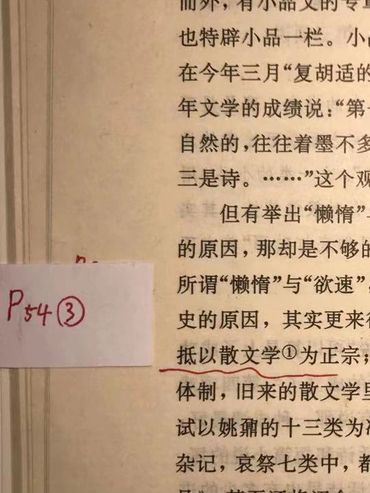 而外，有小品文的专
也特辟小品一栏。小
在今年三月“复胡适的
年文学的成绩说：“第
自然的，往往着墨不多
三是诗。……”这个观
但有举出“懒惰”
的原因，那却是不够的
所谓“懒惰”与“欲速”
P54③
史的原因，其实更来得
抵以散文学①为正宗；
体制，旧来的散文学里
试以姚鼐的十三类为准
杂记，哀祭七类中，都